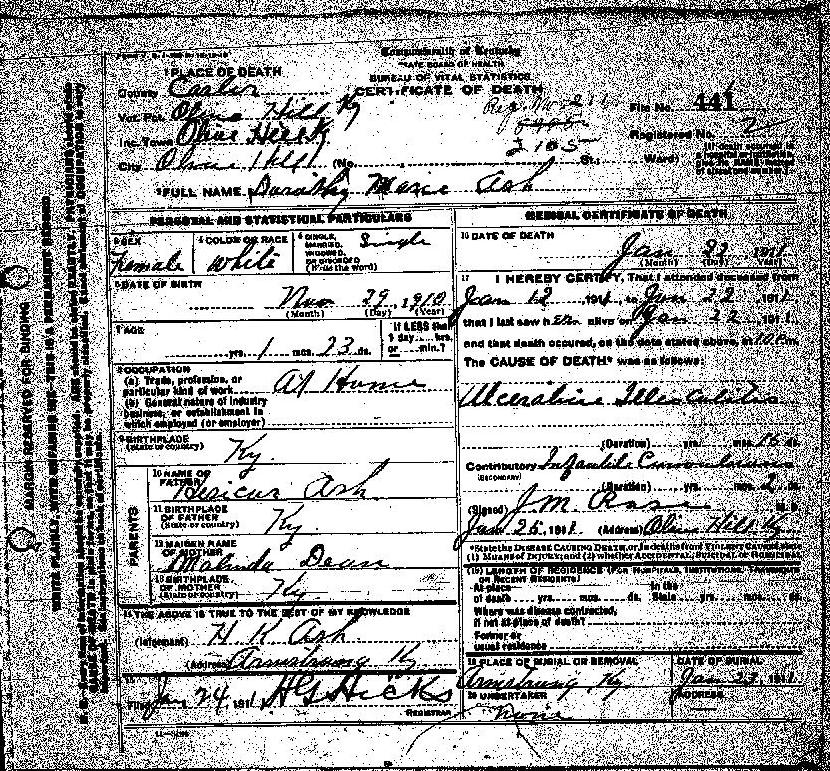 Commonwealth of Kentucky
STATE BOARD OF HEALTH
BUREAU OF VITAL STATISTICS
CERTIFICATE OF DEATH
1 PLACE OF DEATH
County Carter
Vot. Pct. Olive Hill Ky
Inc. Town Olive Hill Ky
City Olive Hill (No. St., Ward)
File No. 441
Registered No. 2
2105
2 FULL NAME Dorothy Marie Ash
PERSONAL AND STATISTICAL PARTICULARS
3 SEX Female
4 COLOR OR RACE White
5 SINGLE, MARRIED, WIDOWED, OR DIVORCED (Write the word) Single
6 DATE OF BIRTH
Nov 29, 1910
(Month) (Day) (Year)
7 AGE
yrs. 1 mos. 23 ds.
If LESS than 1 day hrs. or min.?
8 OCCUPATION
(a) Trade, profession, or particular kind of work At Home
(b) General nature of industry business, or establishment in which employed (or employer)
9 BIRTHPLACE (State or country) Ky.
PARENTS
10 NAME OF FATHER Ash
11 BIRTHPLACE OF FATHER (State or country) Ky.
12 MAIDEN NAME OF MOTHER Malinda Dean
13 BIRTHPLACE OF MOTHER (State or country) Ky.
14 THE ABOVE IS TRUE TO THE BEST OF MY KNOWLEDGE
(Informant) H K Ash
(Address) Armstrong Ky
15
Filed Jan 24, 1911 H G Hicks
REGISTRAR
MEDICAL CERTIFICATE OF DEATH
16 DATE OF DEATH
Jan 22 1911
(Month) (Day) (Year)
17 I HEREBY CERTIFY, That I attended deceased from
Jan 12, 1911, to Jan 22, 1911,
that I last saw her alive on Jan 22, 1911,
and that death occurred, on the date stated above, at
The CAUSE OF DEATH* was as follows:
Ulcerative
(Duration) yrs. mos. ds.
Contributory Infantile Convulsions
(SECONDARY)
(Duration) yrs. mos. 2 ds.
(Signed) J M Rose M.D.
Jan 25, 1911 (Address) Olive Hill Ky
*State the DISEASE CAUSING DEATH, or, in deaths from VIOLENT CAUSES, state (1) MEANS OF INJURY; and (2) whether ACCIDENTAL, SUICIDAL, OR HOMICIDAL
18 LENGTH OF RESIDENCE (FOR HOSPITALS, INSTITUTIONS, TRANSIENTS OR RECENT RESIDENTS)
At place of death yrs. mos. ds. In the State yrs. mos. ds.
Where was disease contracted, if not at place of death?
Former or usual residence
19 PLACE OF BURIAL OR REMOVAL Armstrong, Ky
DATE OF BURIAL Jan 23, 1911
20 UNDERTAKER None
ADDRESS
MARGIN RESERVED FOR BINDING
WRITE PLAINLY, WITH UNFADING INK—THIS IS A PERMANENT RECORD